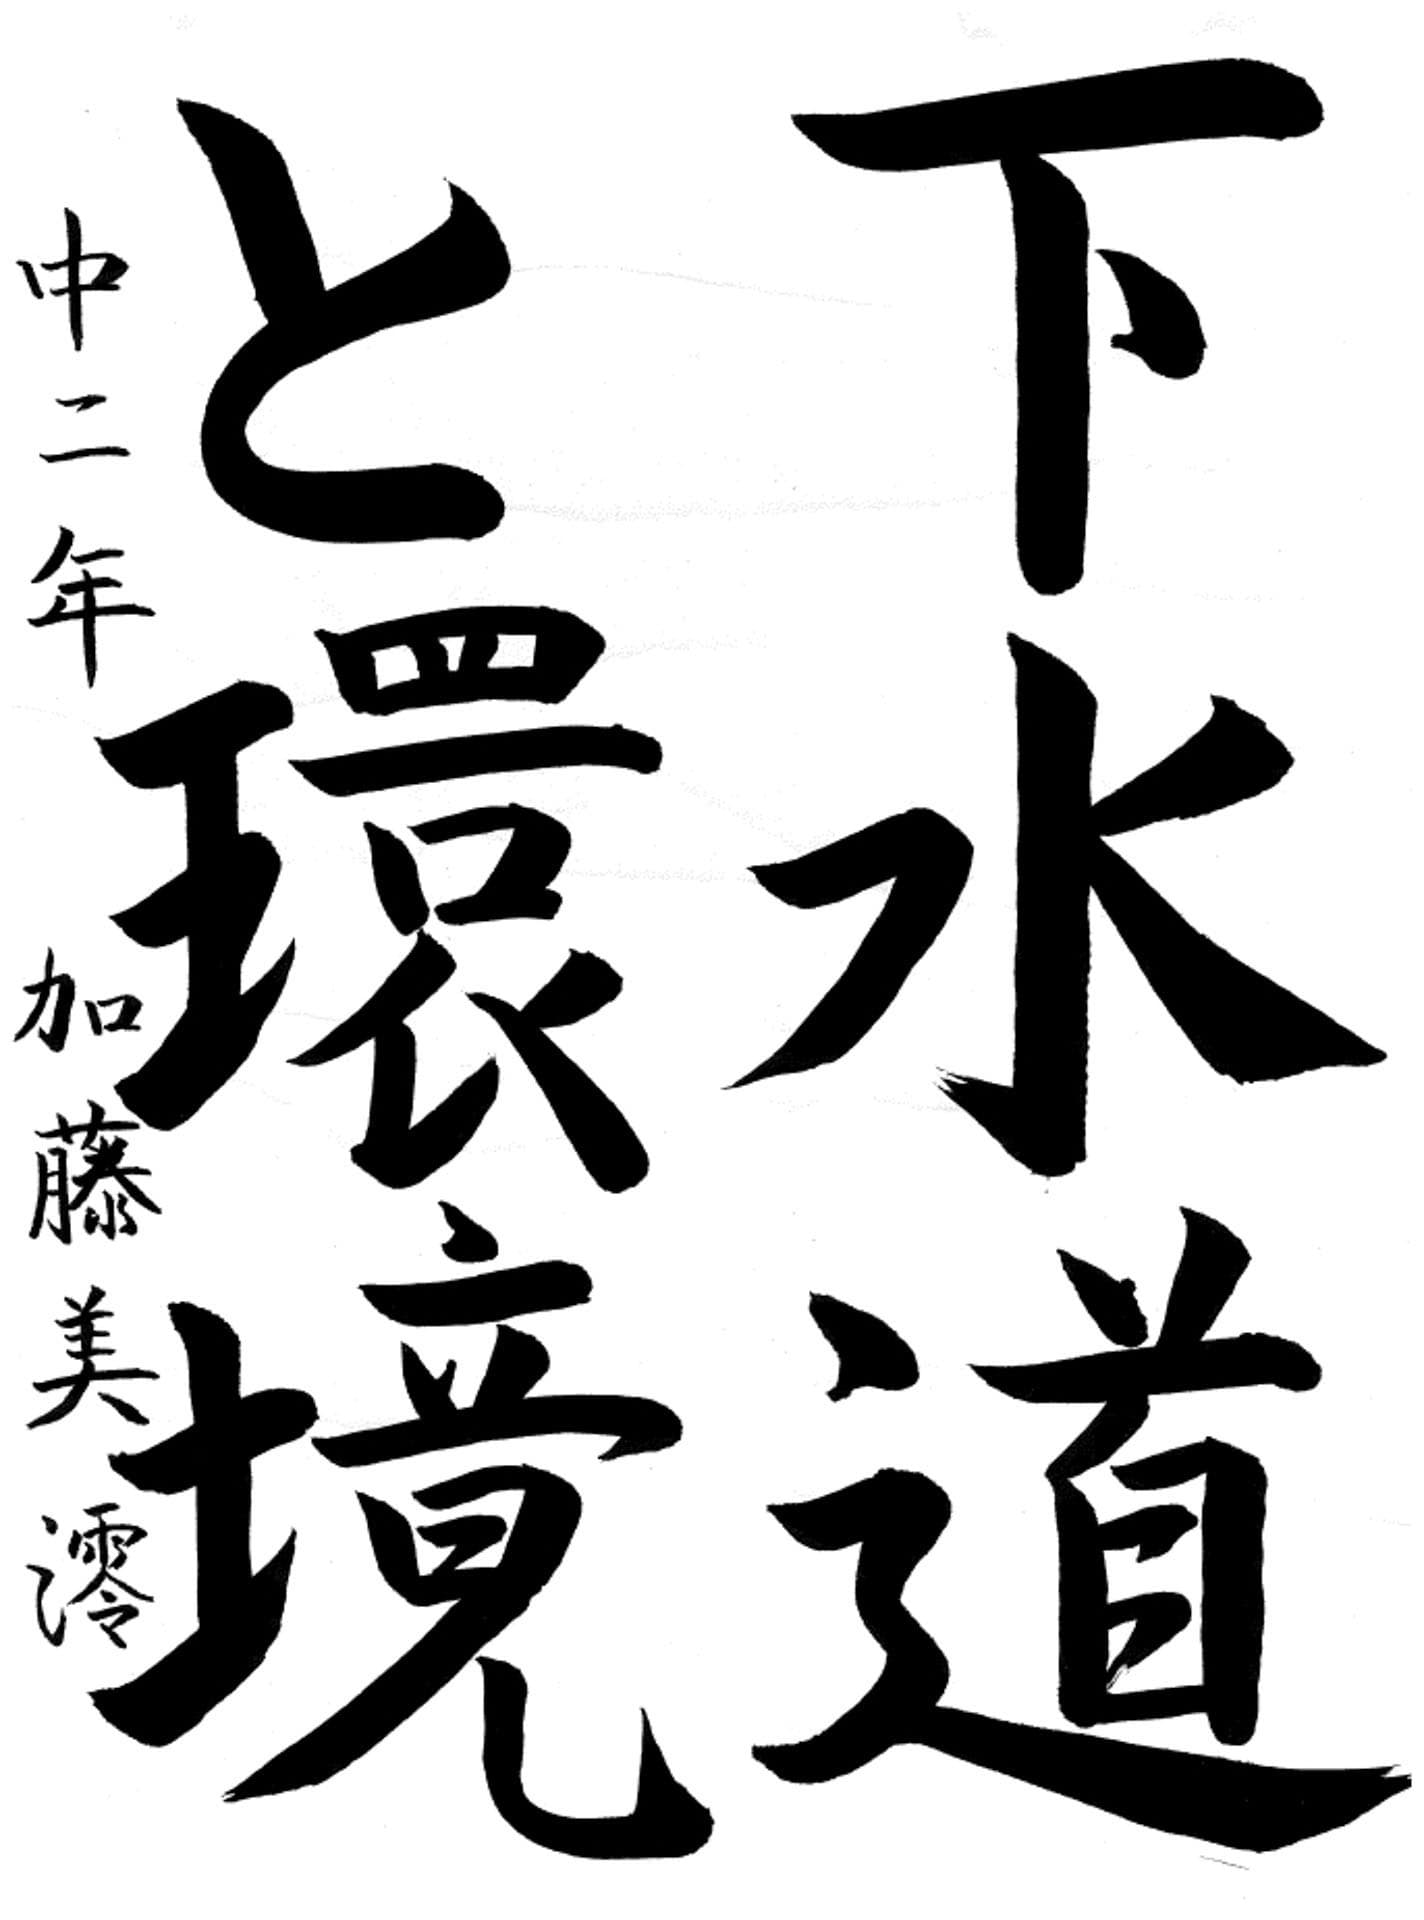 下水道
と環境
中二年 加藤美澪